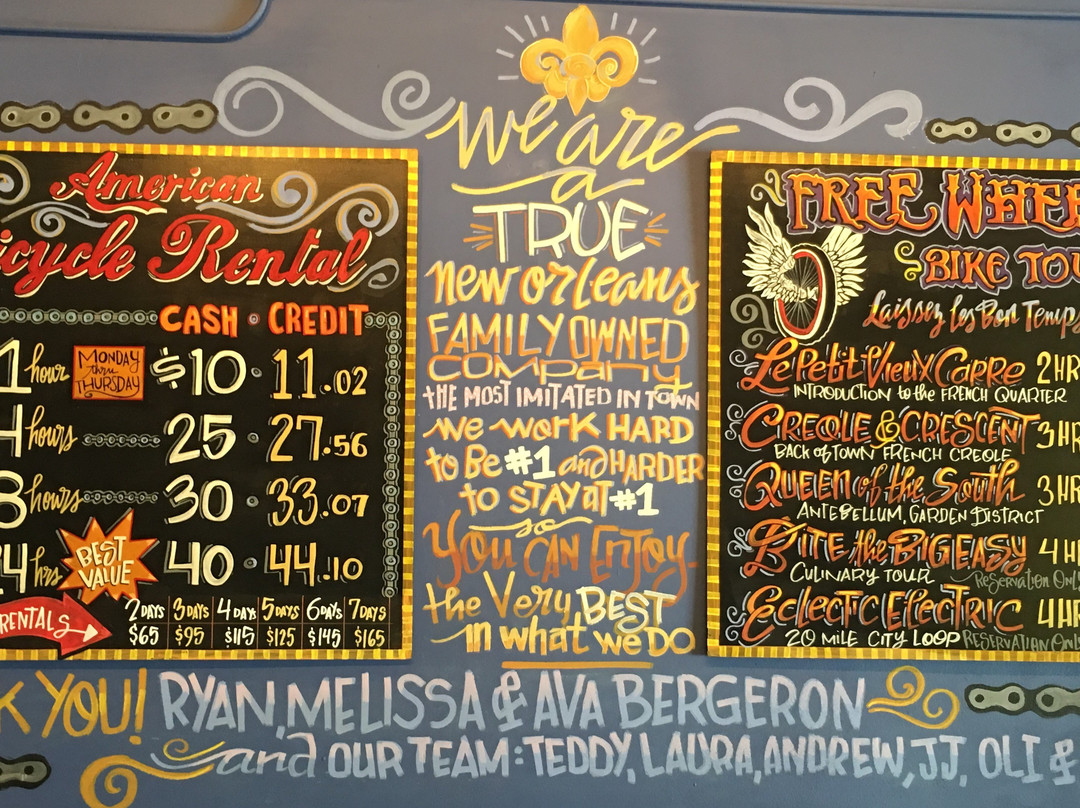 American
icycle Rental
CASH CREDIT
1 hour MONDAY thru THURSDAY $10 11.02
4 hours 25 27.56
8 hours 30 33.07
24 hrs BEST VALUE 40 44.10
RENTALS
2 DAYS 3 DAYS 4 DAYS 5 DAYS 6 DAYS 7 DAYS
$65 $95 $115 $125 $145 $165
we are
a
TRUE
new orleans
FAMILY OWNED
Company
the MOST IMITATED IN TOWN
we work HARD
to Be #1 and HARDER
to STAY AT #1
so
You CAN ENJOY
the Very BEST
in what we DO
FREE WHEE
BIKE TOU
Laissez les Bon Temps
Le Petit Vieux Carre 2 HR
INTRODUCTION to the FRENCH QUARTER
CREOLE & CRESCENT 3 HR
BACK of TOWN FRENCH CREOLE
QUEEN of the South 3 HR
ANTEBELLUM, GARDEN DISTRICT
BITE the BIG EASY 4 H
CULINARY TOUR Reservation Onl
Eclectc Electric 4 HR
20 MILE CITY LOOP RESERVATION Onl
K YOU! RYAN, MELISSA & AVA BERGERON
and OUR TEAM: TEDDY, LAURA, ANDREW, JJ, OLI &